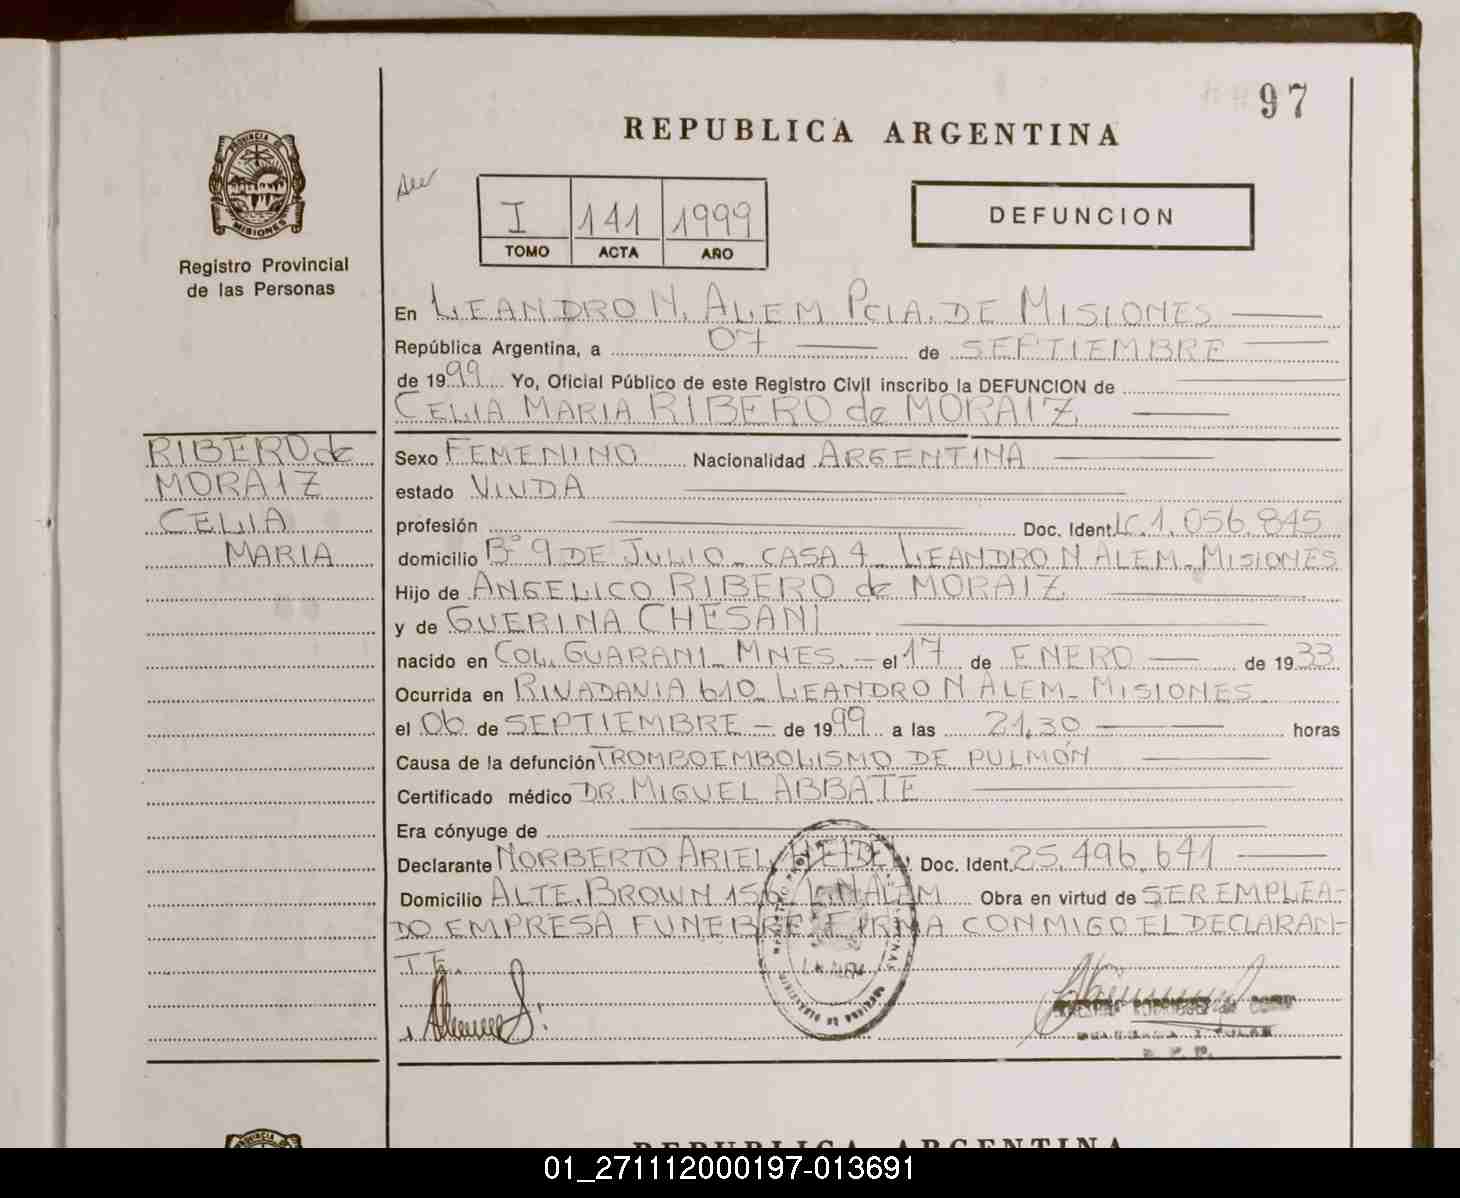 97
REPUBLICA ARGENTINA
PROVINCIA DE
MISIONES
Registro Provincial
de las Personas
I 141 1999
TOMO ACTA AÑO
DEFUNCION
En LEANDRO N. ALEM PCIA. DE MISIONES
República Argentina, a 07 de SEPTIEMBRE
de 1999 Yo, Oficial Público de este Registro Civil inscribo la DEFUNCION de
CELIA MARIA RIBERO de MORAIZ
RIBERO de
MORAIZ
CELIA
MARIA
Sexo FEMENINO Nacionalidad ARGENTINA
estado VIUDA
profesión Doc. Ident. LC.1.056.845
domicilio Bº 9 DE JULIO - CASA 4 - LEANDRO N ALEM - MISIONES
Hijo de ANGELICO RIBERO de MORAIZ
y de GUERINA CHESANI
nacido en COL. GUARANI - MNES. el 17 de ENERO de 1933
Ocurrida en RIVADAVIA 610 - LEANDRO N ALEM - MISIONES
el 06 de SEPTIEMBRE - de 1999 a las 21,30 horas
Causa de la defunción TROMBOEMBOLISMO DE PULMÓN
Certificado médico DR. MIGUEL ABBATE
Era cónyuge de
Declarante NORBERTO ARIEL HEIDEL Doc. Ident. 25.496.641
Domicilio ALTE. BROWN 156 L.N ALEM Obra en virtud de SER EMPLEA-
DO EMPRESA FUNEBRE FIRMA CONMIGO EL DECLARAN-
TE.
L.N. ALEM
RODRIGUEZ
REPUBLICA ARGENTINA
01_271112000197-013691